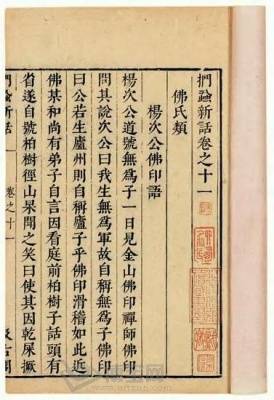 捫蝨新話卷之十一
佛氏類
楊次公佛印語
楊次公道號無為子一日見金山佛印禪師佛印
問其說次公曰我生無為軍故自稱無為子佛印
曰公若生廬州則自稱廬子乎佛印滑稽如此近
佛某和尚有弟子自言因看庭前柏樹子話頭有
省遂自號柏樹徑山杲聞之笑曰使其因乾屎橛
捫蝨新話 卷之十一 汲古閣